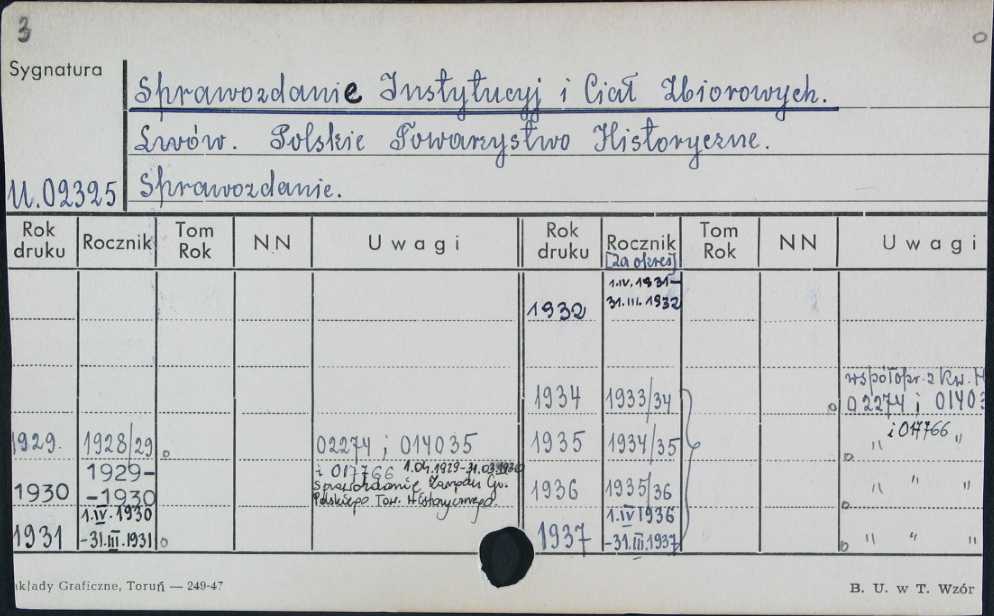 3
Sygnatura
Sprawozdanie Instytucyj i Ciał Zbiorowych.
Lwów. Polskie Towarzystwo Historyczne.
U.02325 Sprawozdanie.
Rok druku Rocznik Tom Rok NN Uwagi Rok druku Rocznik [za okres] Tom Rok NN Uwagi
1932 1.IV.1931–31.III.1932
1934 1933/34 współopr. z Kw. H
02274 i 01403
1929. 1928/29 02274 i 014035 1935 1934/35 " i 017766 "
1930 1929–-1930 i 017766 1.04.1929–31.03.1930
Sprawozdanie Zarządu Gł.
Polskiego Tow. Historycznego. 1936 1935/36 " " "
1931 1.IV.1930
-31.III.1931 1937 1.IV 1936
-31.III.1937 " " "
akłady Graficzne, Toruń — 249-47 B. U. w T. Wzór